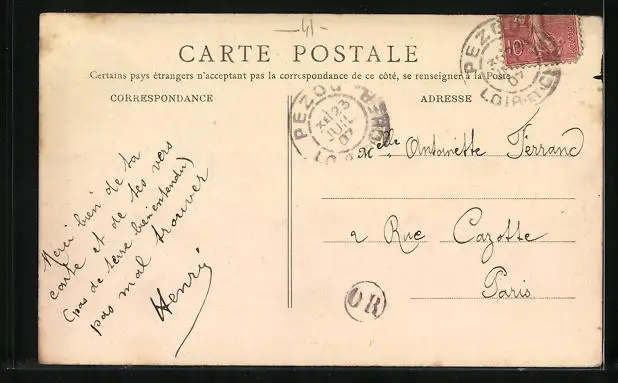 41
CARTE POSTALE
Certains pays étrangers n'acceptant pas la correspondance de ce côté, se renseigner à la Poste
CORRESPONDANCE
ADRESSE
PEZOU
3E 23
JUIL
07
LOIR-ET-CHER
PEZOU
07
LOIR-ET-CH
10
Melle Antoinette Ferrand
2 Rue Cazotte
Paris
OR
Merci bien de ta
carte et de tes vers
(pas de terre bien entendu)
pas mal trouver
Henri